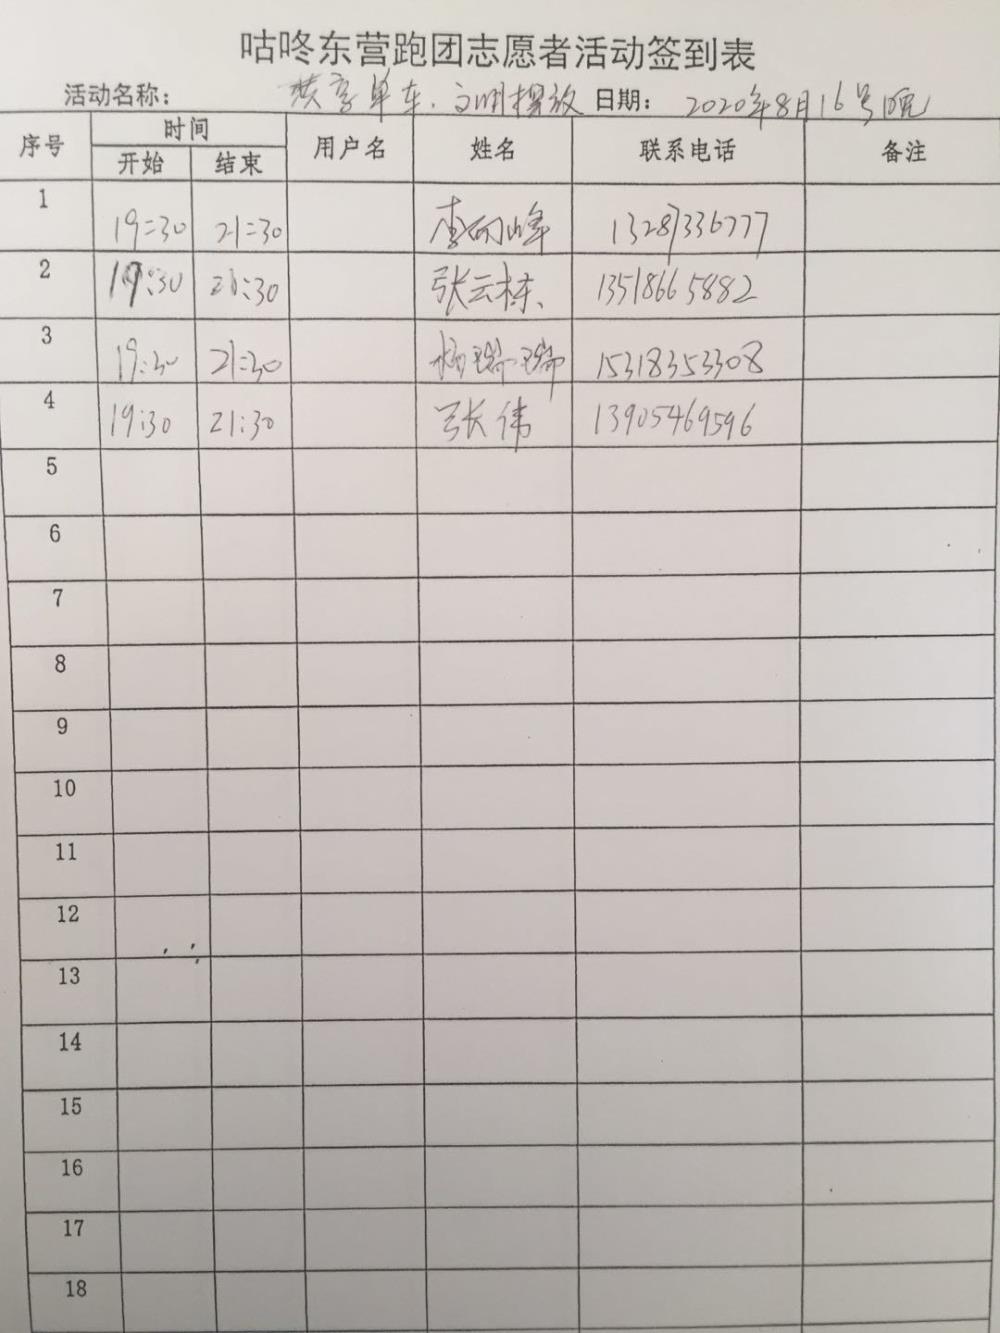 咕咚东营跑团志愿者活动签到表
活动名称: 共享单车、文明摆放 日期: 2020年8月16号晚
序号 时间 用户名 姓名 联系电话 备注
开始 结束
1 19:30 21:30 李丙峰 13287336777
2 19:30 21:30 张云栋、 13518665882
3 19:30 21:30 杨瑞瑞 15318353308
4 19:30 21:30 张伟 13905469596
5
6
7
8
9
10
11
12
13
14
15
16
17
18